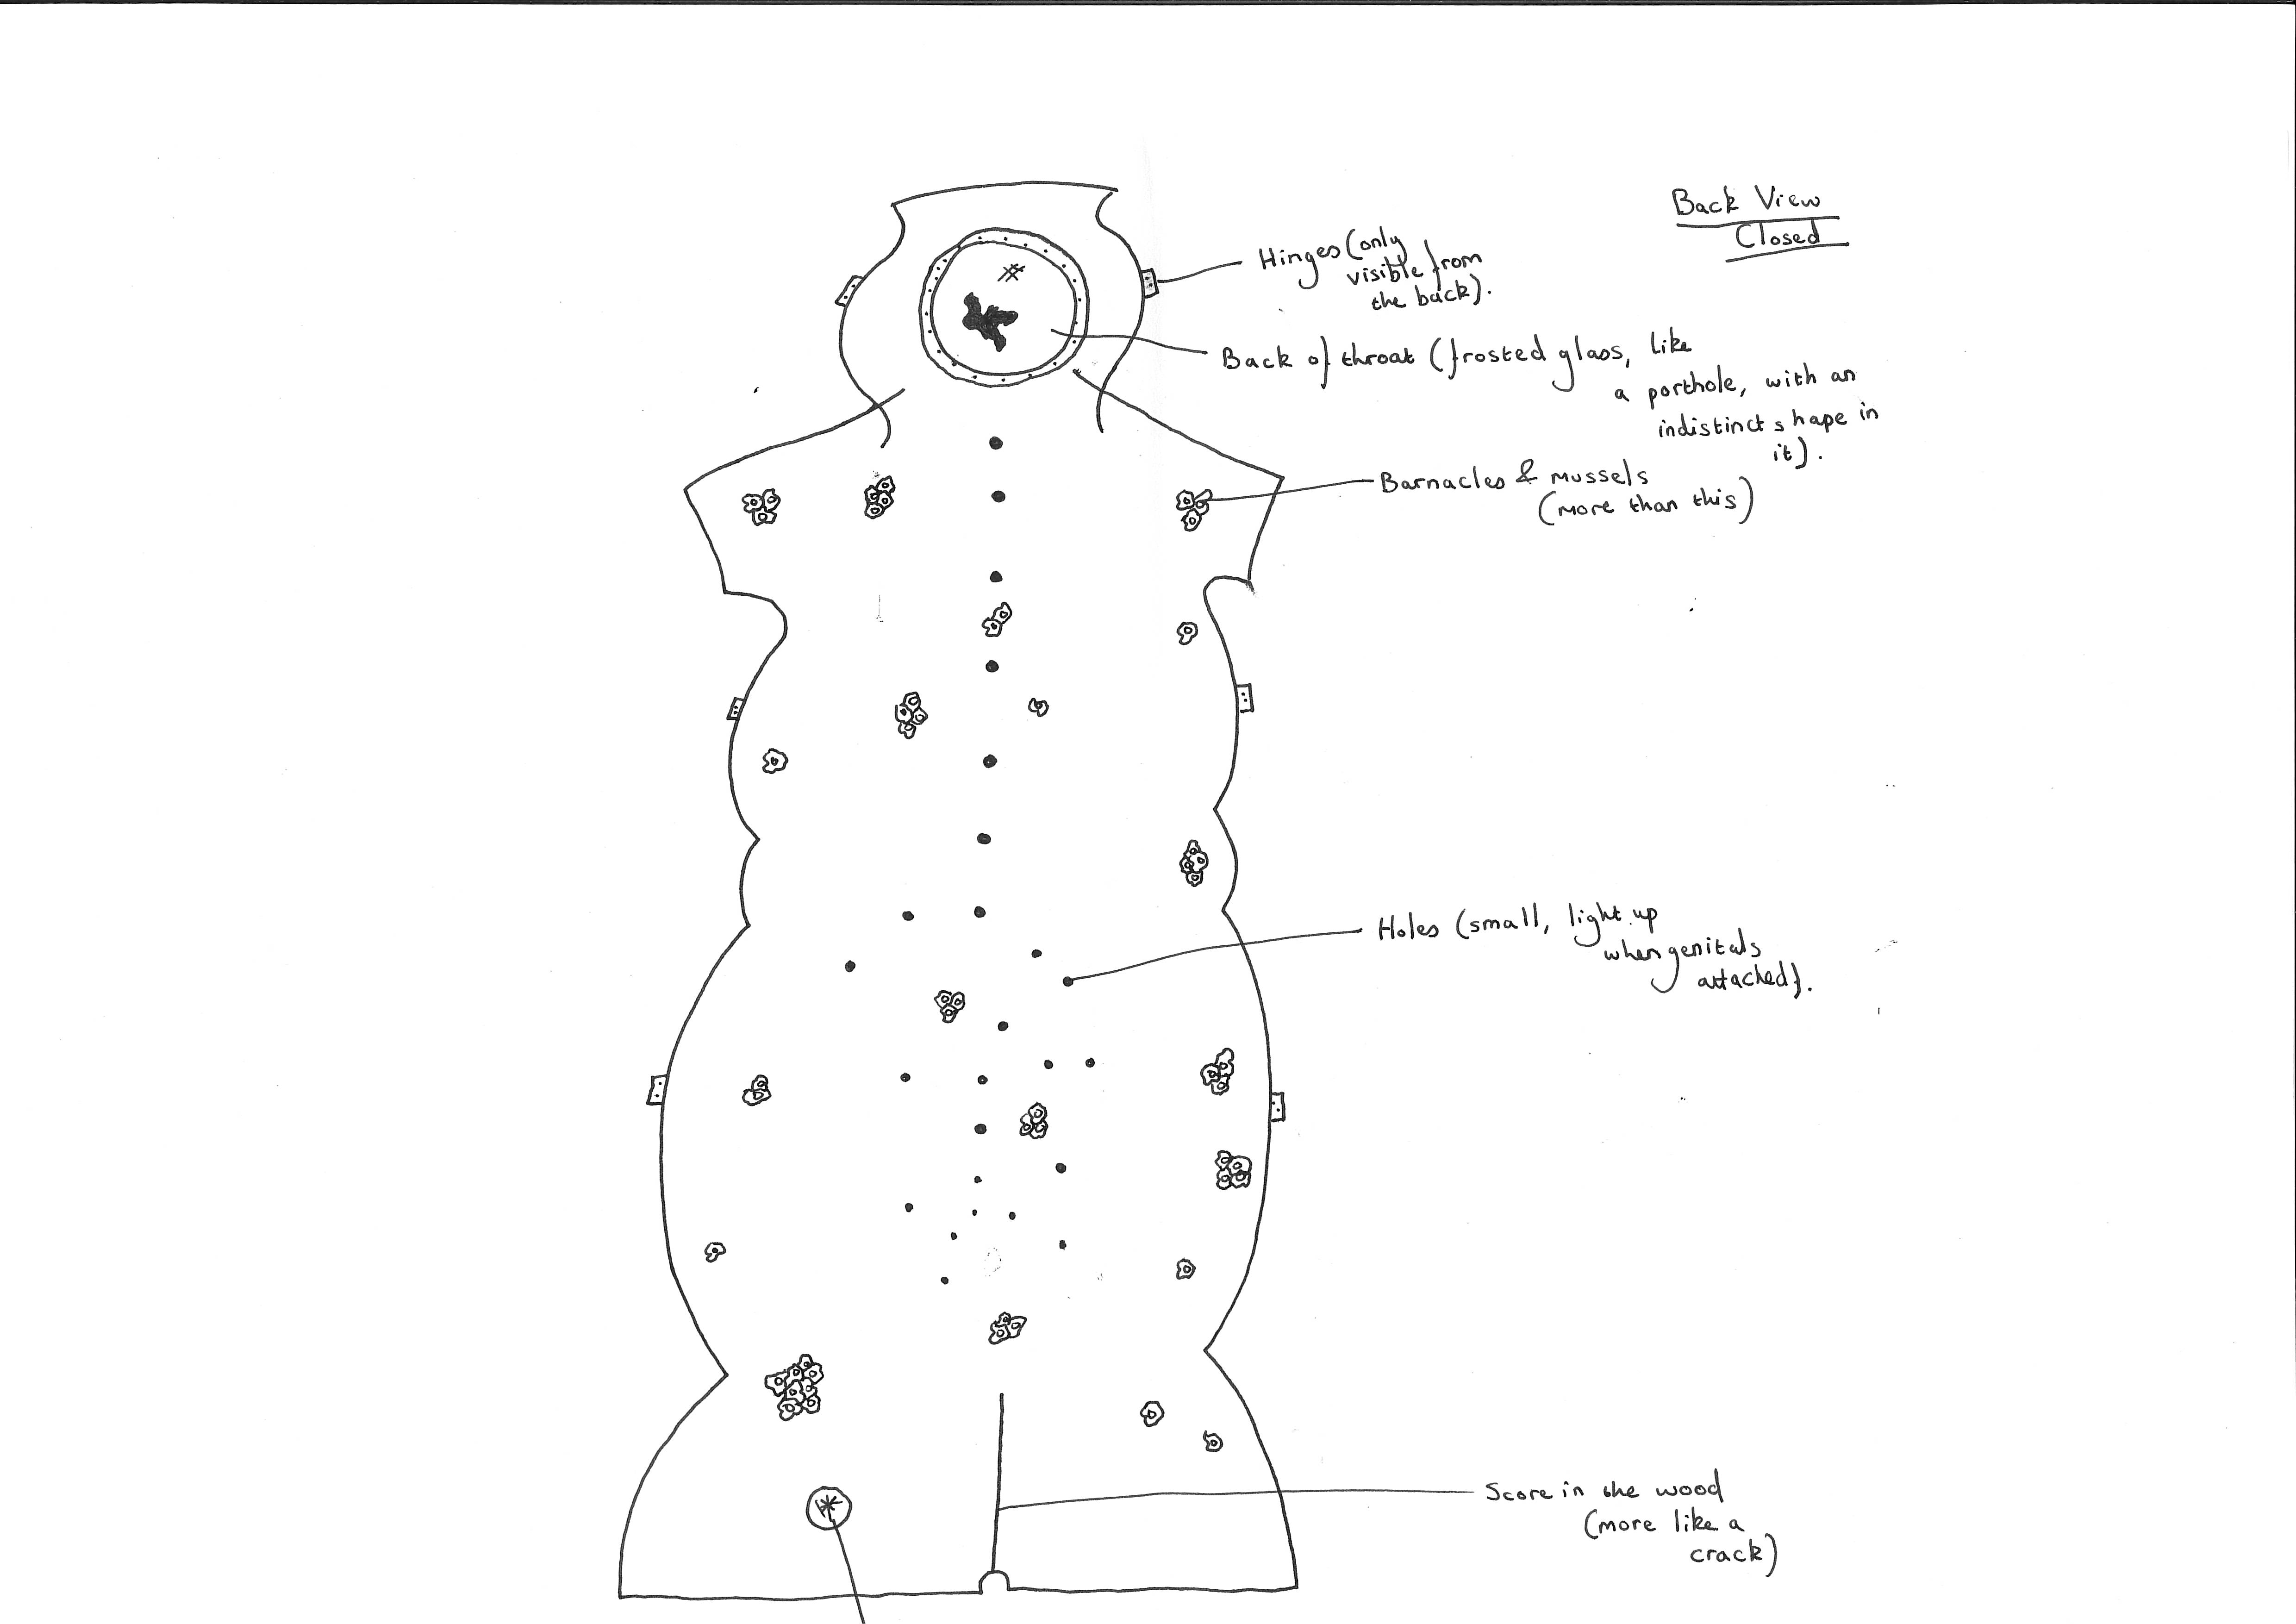 Back View
Closed
Hinges (only
visible from
the back).
Back of throat (frosted glass, like
a porthole, with an
indistinct shape in
it).
Barnacles & mussels
(more than this)
Holes (small, light up
when genitals
attached).
Score in the wood
(more like a
crack)